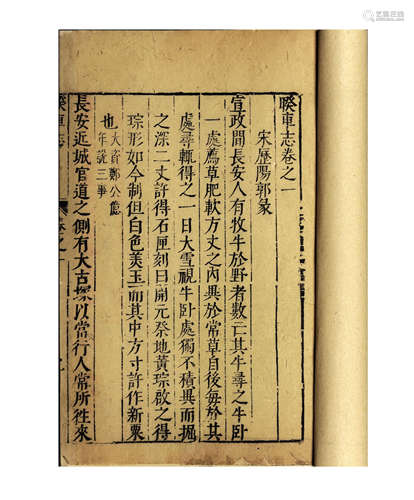 睽車志卷之一
宋歷陽郭彖
宣政間長安人有牧牛於野者數亡其牛尋之牛卧
一處薦草肥軟方丈之內異於常草自後每於其
處尋輒得之一日大雪視牛卧處獨不積異而掘
之深二丈許得石匣刻曰開元祭地黃琮啟之得
琮形如今制但白色美玉而其中方寸許作新栗
也大資鄭公億
年說三事
長安近城官道之側有大古塚以當行人常所往來
睽車志
卷之一